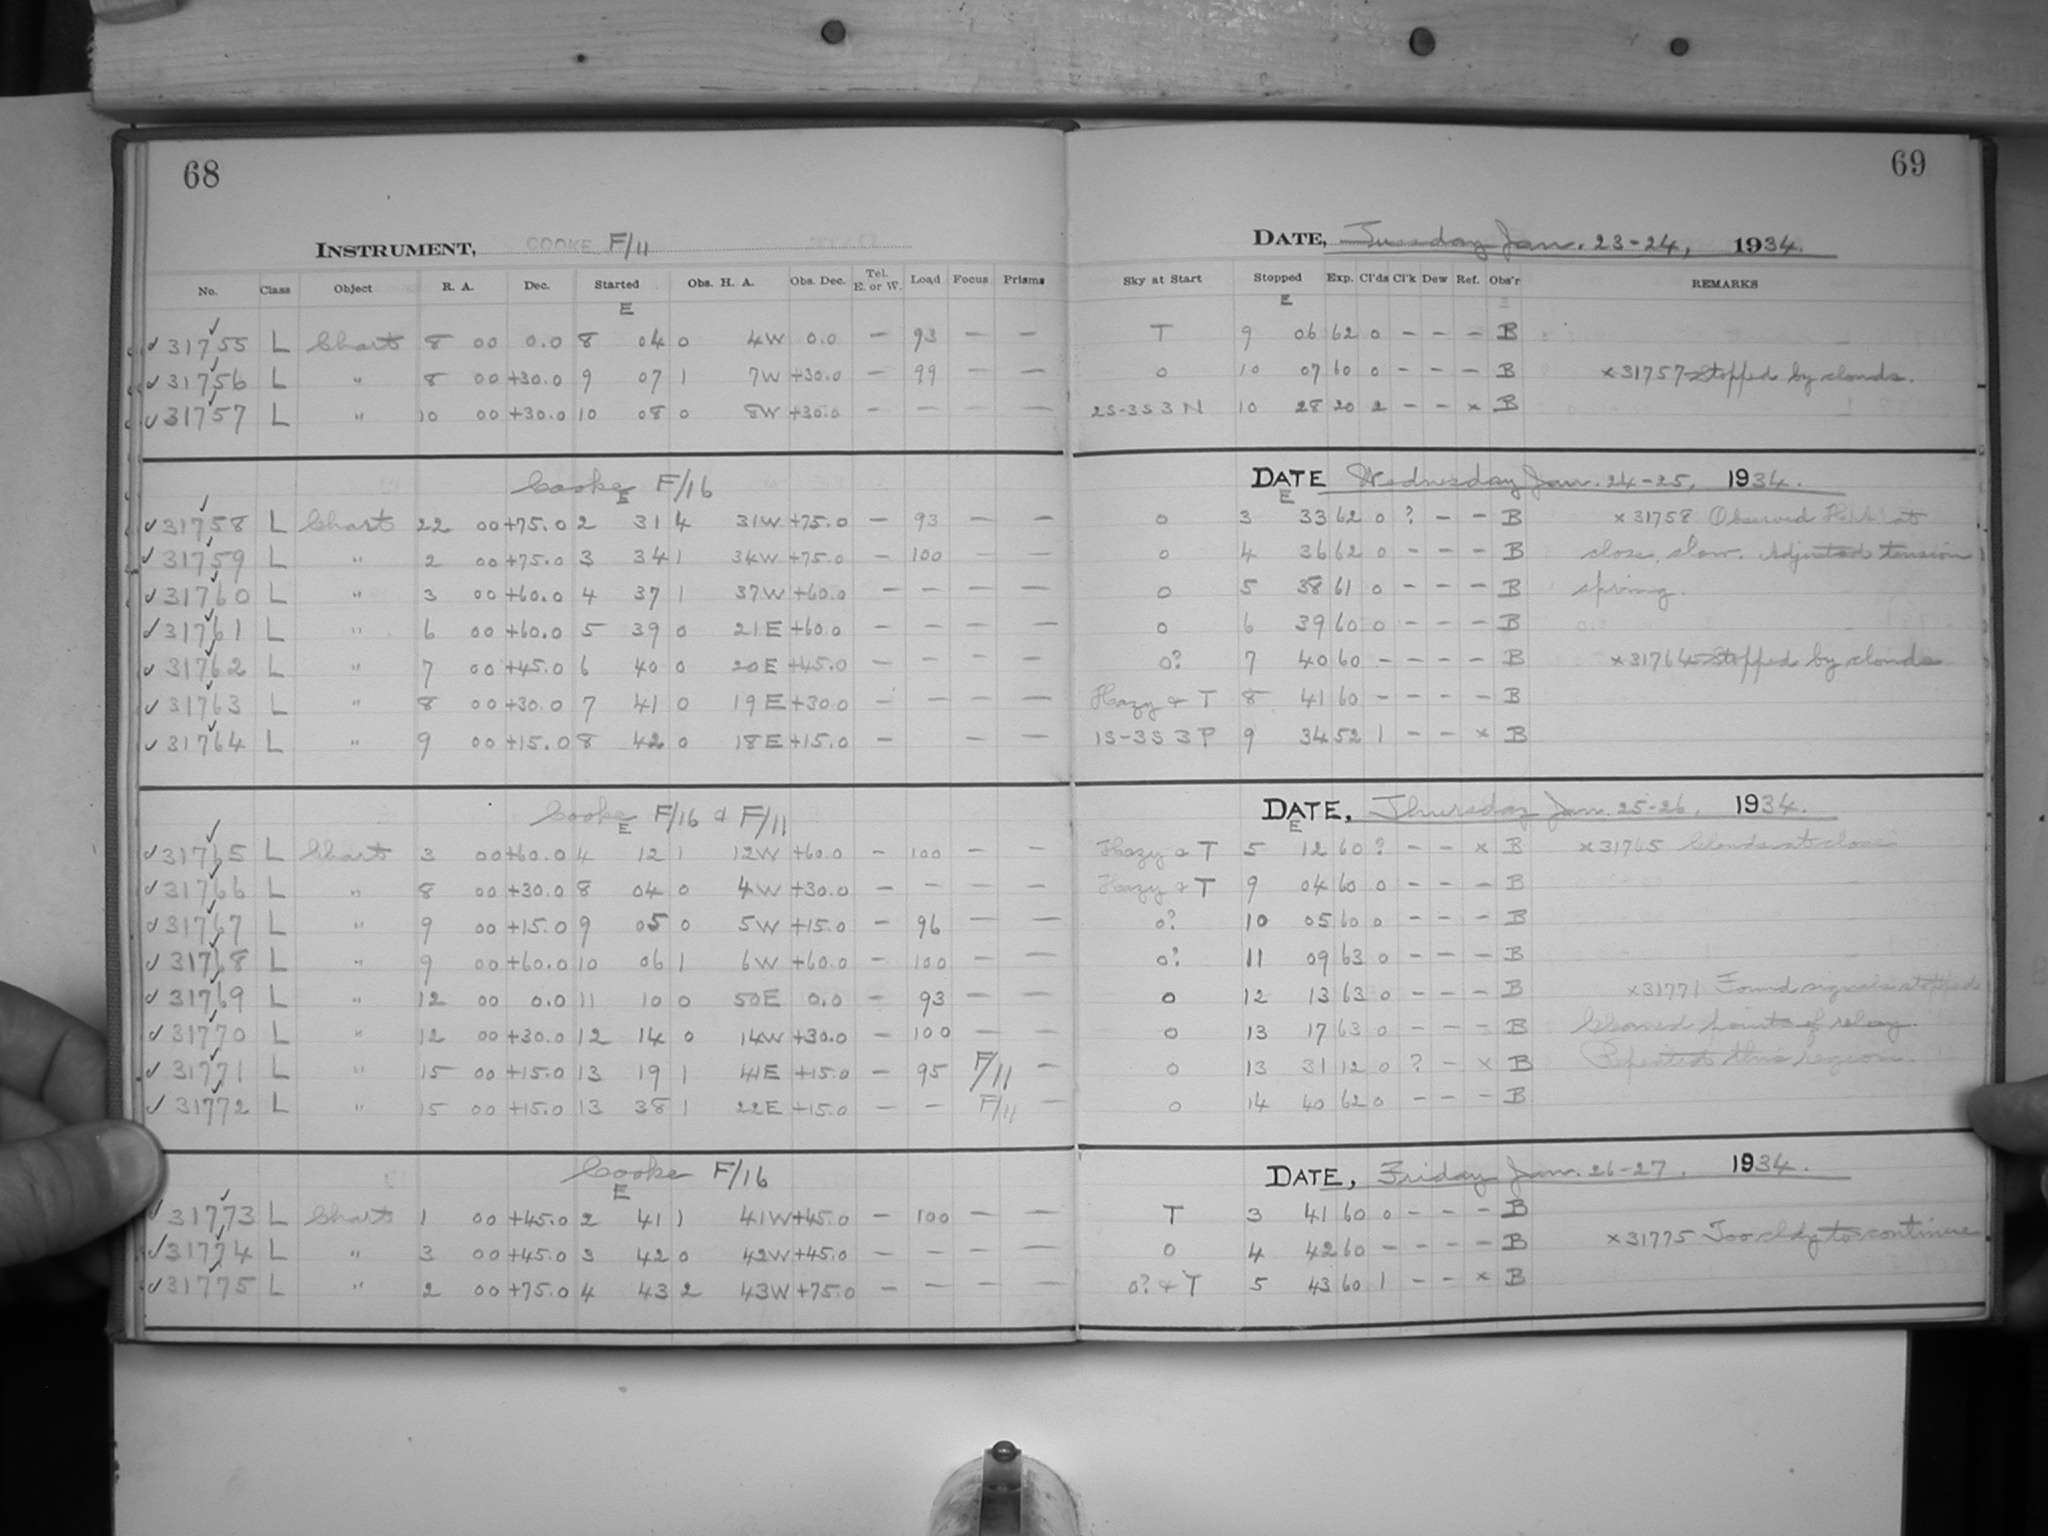 68
INSTRUMENT, COOKE F/11
No. Class Object R. A. Dec. Started Obs. H. A. Obs. Dec. Tel. E. or W. Load Focus Prisms
E
✓ 31755 L Chart 8 00 0.0 8 04 0 4W 0.0 – 93 – –
✓ 31756 L " 8 00 +30.0 9 07 1 7W +30.0 – 99 – –
✓ 31757 L " 10 00 +30.0 10 08 0 8W +30.0 – – – –
Cooke F/16
E
✓ 31758 L Chart 22 00 +75.0 2 31 4 31W +75.0 – 93 – –
✓ 31759 L " 2 00 +75.0 3 34 1 34W +75.0 – 100 – –
✓ 31760 L " 3 00 +60.0 4 37 1 37W +60.0 – – – –
✓ 31761 L " 6 00 +60.0 5 39 0 21E +60.0 – – – –
✓ 31762 L " 7 00 +45.0 6 40 0 20E +45.0 – – – –
✓ 31763 L " 8 00 +30.0 7 41 0 19E +30.0 – – – –
✓ 31764 L " 9 00 +15.0 8 42 0 18E +15.0 – – –
Cooke F/16 & F/11
E
✓ 31765 L Chart 3 00 +60.0 4 12 1 12W +60.0 – 100 – –
✓ 31766 L " 8 00 +30.0 8 04 0 4W +30.0 – – – –
✓ 31767 L " 9 00 +15.0 9 05 0 5W +15.0 – 96 – –
✓ 31768 L " 9 00 +60.0 10 06 1 6W +60.0 – 100 – –
✓ 31769 L " 12 00 0.0 11 10 0 50E 0.0 – 93 – –
✓ 31770 L " 12 00 +30.0 12 14 0 14W +30.0 – 100 – –
✓ 31771 L " 15 00 +15.0 13 19 1 41E +15.0 – 95 F/11 –
✓ 31772 L " 15 00 +15.0 13 38 1 22E +15.0 – – F/11 –
Cooke F/16
E
✓ 31773 L Chart 1 00 +45.0 2 41 1 41W +45.0 – 100 – –
✓ 31774 L " 3 00 +45.0 3 42 0 42W +45.0 – – – –
✓ 31775 L " 2 00 +75.0 4 43 2 43W +75.0 – – – –
69
DATE, Tuesday Jan. 23-24, 1934.
Sky at Start Stopped Exp. Cl'ds Cl'k Dew Ref. Obs'r REMARKS
E
T 9 06 62 0 – – – B
0 10 07 60 0 – – – B × 31757 Stopped by clouds.
2S-3S 3N 10 28 20 2 – – × B
DATE Wednesday Jan. 24-25, 1934.
E
0 3 33 62 0 ? – – B × 31758 Observed at
0 4 36 62 0 – – – B close, slow. Adjusted tension
0 5 38 61 0 – – – B spring.
0 6 39 60 0 – – – B
0? 7 40 60 – – – – B × 31764 Stopped by clouds
Hazy & T 8 41 60 – – – – B
1S-3S 3P 9 34 52 1 – – × B
DATE, Thursday Jan. 25-26, 1934.
E
Hazy & T 5 12 60 ? – – × B × 31765 Clouds at close
Hazy & T 9 04 60 0 – – – B
0? 10 05 60 0 – – – B
0? 11 09 63 0 – – – B
0 12 13 63 0 – – – B × 31771 Found signals stopped
0 13 17 63 0 – – – B Cleaned points of relay.
0 13 31 12 0 ? – × B Repeated this region.
0 14 40 62 0 – – – B
DATE, Friday Jan. 26-27, 1934.
T 3 41 60 0 – – – B
0 4 42 60 – – – – B × 31775 Too cldy to continue
0? & T 5 43 60 1 – – × B